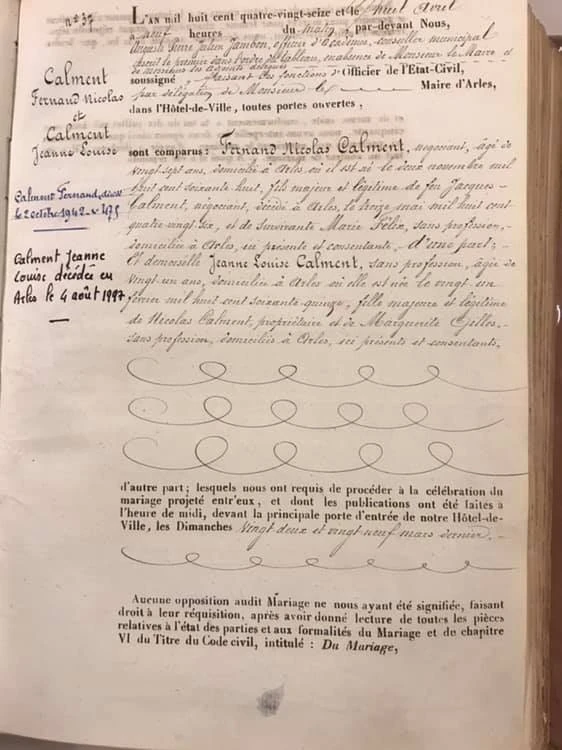 n° 37
Calment
Fernand Nicolas
et
Calment
Jeanne Louise
Calment Fernand, décédé
le 2 octobre 1942 - n° 475
Calment Jeanne
Louise décédée en
Arles le 4 août 1997
L'AN mil huit cent quatre-vingt-seize et le huit Avril
à neuf heures du matin, par-devant Nous,
Auguste Pierre Julien Jambon, officier d'Académie, conseiller municipal
le premier dans l'ordre du tableau, en absence de Monsieur le Maire et
de messieurs les Adjoints
soussigné, faisant les fonctions d'Officier de l'Etat-Civil,
par délégation de Monsieur le Maire d'Arles,
dans l'Hôtel-de-Ville, toutes portes ouvertes,
sont comparus : Fernand Nicolas Calment, négociant, âgé de
vingt-sept ans, domicilié à Arles, où il est né le deux novembre mil
huit cent soixante huit, fils majeur et légitime de feu Jacques
Calment, négociant, décédé à Arles, le treize mai mil huit cent
quatre-vingt-six, et de survivante Marie Félix, sans profession,
domiciliée à Arles, ici présente et consentante, d'une part;
Et demoiselle Jeanne Louise Calment, sans profession, âgée de
vingt-un ans, domiciliée à Arles où elle est née le vingt un
février mil huit cent soixante-quinze, fille majeure et légitime
de Nicolas Calment, propriétaire et de Marguerite Gilles,
sans profession, domiciliés à Arles, ici présents et consentants,
d'autre part ; lesquels nous ont requis de procéder à la célébration du
mariage projeté entr'eux, et dont les publications ont été faites à
l'heure de midi, devant la principale porte d'entrée de notre Hôtel-de-
Ville, les Dimanches vingt deux et vingt neuf mars dernier.
Aucune opposition audit Mariage ne nous ayant été signifiée, faisant
droit à leur réquisition, après avoir donné lecture de toutes les pièces
relatives à l'état des parties et aux formalités du Mariage et de chapitre
VI du Titre du Code civil, intitulé : Du Mariage,